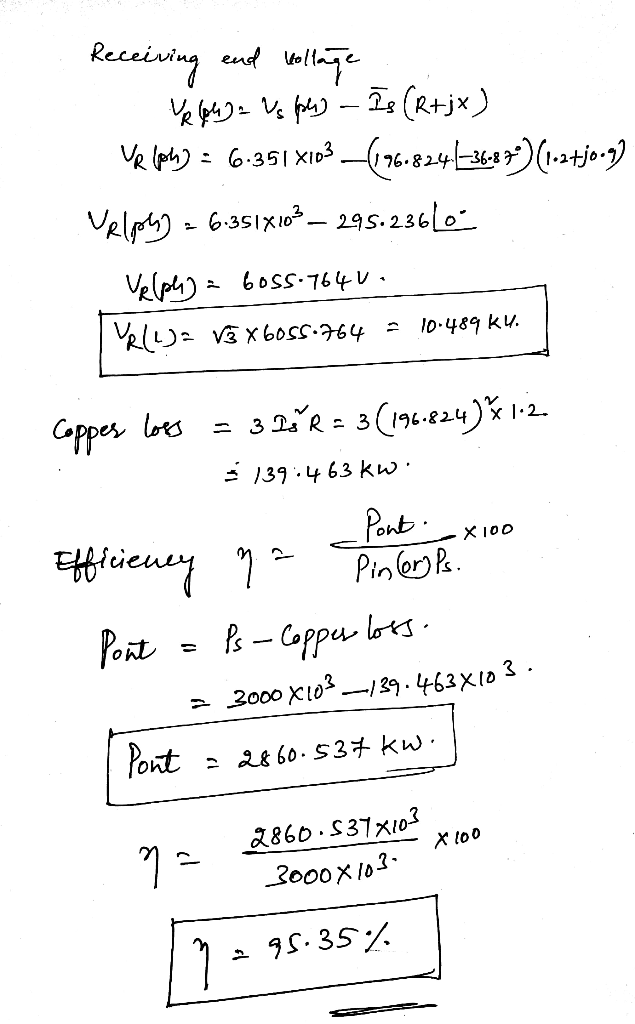 Receiving end voltage
VR(ph) = Vs(ph) − Īs (R+jx)
VR(ph) = 6.351×10³ − (196.824∠-36.87°)(1.2+j0.9)
VR(ph) = 6.351×10³ − 295.236∠0°
VR(ph) = 6055.764 V.
VR(L) = √3 × 6055.764 = 10.489 kV.
Copper loss = 3 Is² R = 3(196.824)² × 1.2
= 139.463 kW.
Efficiency η = Pout / Pin (or) Ps. × 100
Pout = Ps − Copper loss.
= 3000×10³ − 139.463×10³.
Pout = 2860.537 kW.
η = 2860.537×10³ / 3000×10³ × 100
η = 95.35%